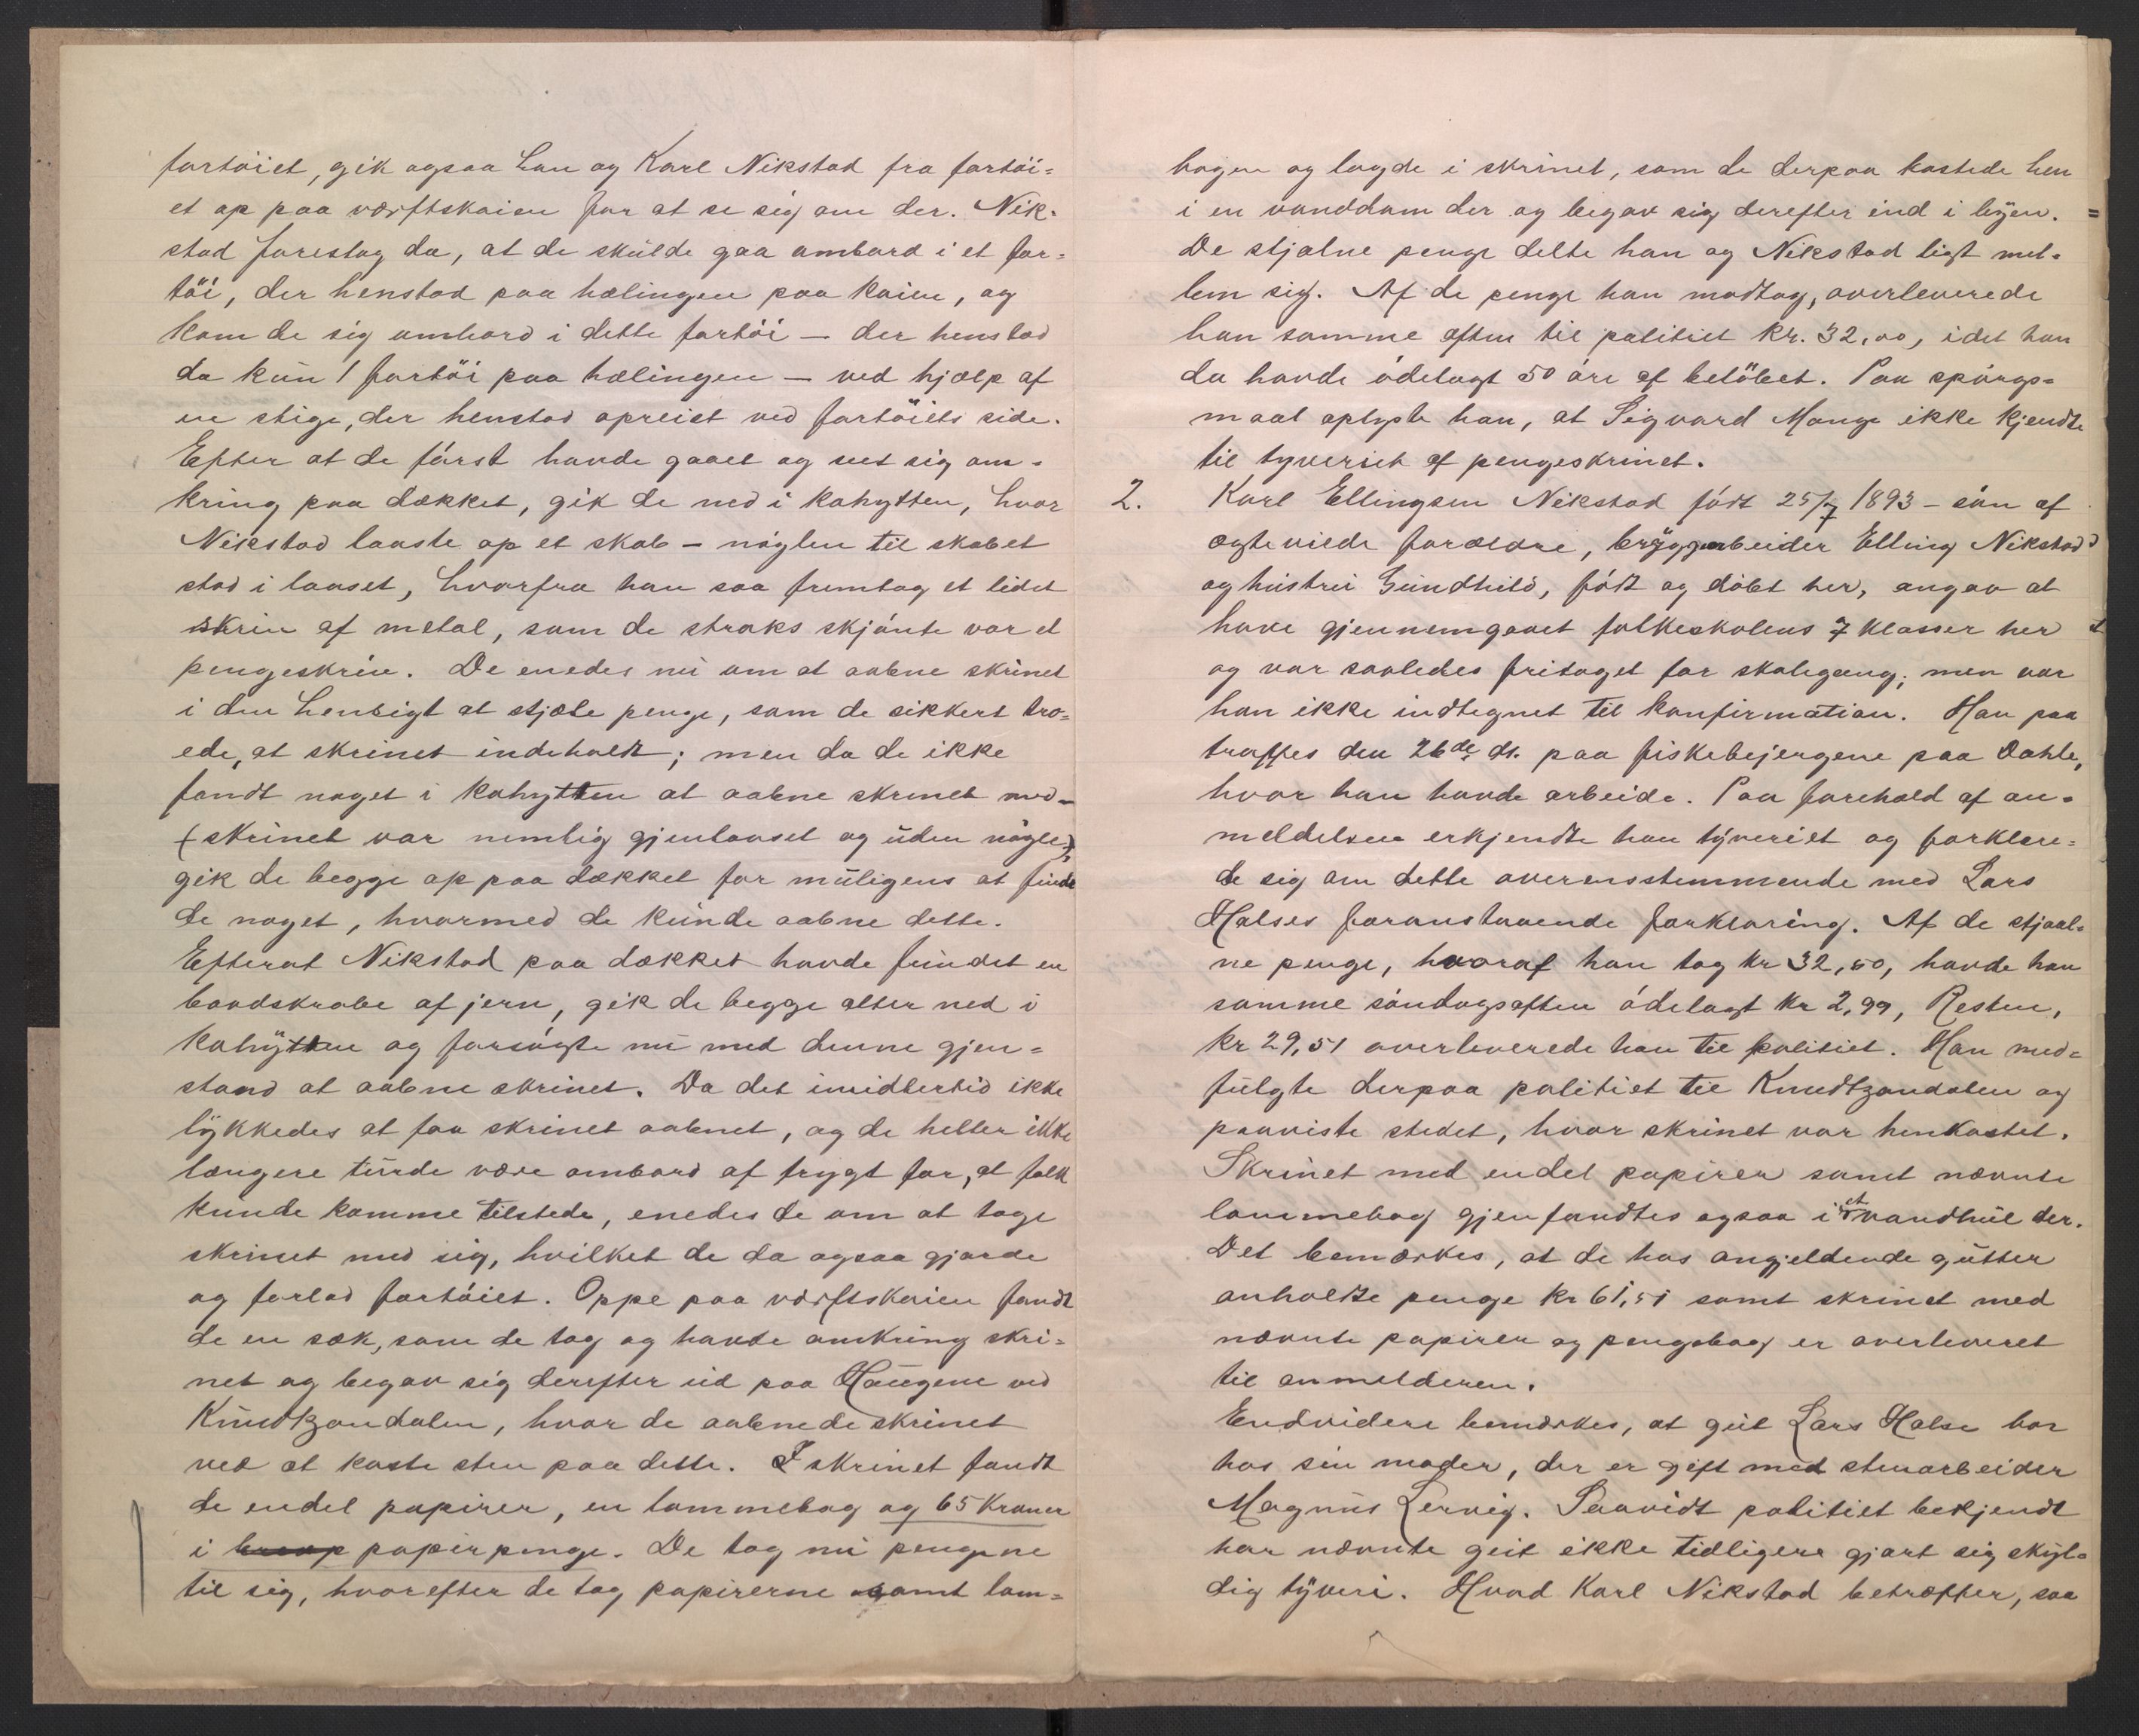 fartöiet, gik ogsaa han og Karl Nikstad fra fartöi=
et op paa værftskaien for at se sig om der. Nik=
stad foreslog da, at de skulde gaa ombord i et far=
töi, der henstod paa halingen paa kaien, og
kom de sig ombord i dette fartöi – der henstod
da kun 1 fartöi paa halingen – ved hjælp af
en stige, der henstod opreist ved fartöiets side.
Efter at de först havde gaaet og seet sig om=
kring paa dækket, gik de ned i kahytten, hvor
Nikstad laaste op et skab – nöglen til skabet
stod i laaset, hvorfra han saa fremtog et lidet
skrin af metal, som de straks skjönte var et
pengeskrin. De enedes nu om at aabne skrinet
i den hensigt at stjæle penge, som de sikkert tro=
ede, at skrinet indeholdt; men da de ikke
fandt noget i kahytten at aabne skrinet med –
(skrinet var nemlig gjenlaaset og uden nögle),
gik de begge op paa dækket for muligens at finde
de noget, hvormed de kunde aabne dette.
Efterat Nikstad paa dækket havde fundet en
bondskrabe af jern, gik de begge atter ned i
kahytten og forsögte nu med denne gjen=
stand at aabne skrinet. Da det imidlertid ikke
lykkedes at faa skrinet aabnet, og de heller ikke
længere turde være ombord af frygt for, at folk
kunde komme tilstede, enedes de om at tage
skrinet med sig, hvilket de da ogsaa gjorde
og forlod fartöiet. Oppe paa værftskaien fandt
de en sæk, som de tog og havde omkring skri=
net og begav sig derefter ud paa Haugene ved
Knudtzondalen, hvor de aabnede skrinet
ved at kaste sten paa dette. I skrinet fandt
de endel papirer, en lommebog og 65 Kroner
i papirpenge. De tog nu pengene
til sig, hvorefter de tog papirerne samt lom=
bogen og lagde i skrinet, som de derpaa kastede hen
i en vanddam der og begav sig derefter ind i byen.
De stjalne penge delte han og Nikstad ligt mel=
lem sig. Af de penge han modtog, overleverede
han samme aften til politiet kr. 32,00, idet han
da havde ödelagt 50 öre af belöbet. Paa spörgs=
maal oplyste han, at Sigvard Mange ikke kjendte
til tyveriet af pengeskrinet.
2. Karl Ellingsen Nikstad födt 25/7 1893 – sön af
ægteviede forældre, bryggearbeider Elling Nikstad
og hustru Gundhild, födt og döbt her, angav at
have gjennemgaaet folkeskolens 7 klasser her
og var saaledes fritaget for skolegang; men var
han ikke indtegnet til konfirmation. Han paa
traffes den 26de ds. paa fiskebejergene paa Dahle,
hvor han havde arbeide. Paa forehold af an=
meldelsen erkjendte han tyveriet og forklare=
de sig om dette overensstemmende med Lars
Halses foranstaaende forklaring. Af de stjaal=
ne penge, hvoraf han tog kr 32,50, havde han
samme söndagsaften ödelagt kr 2,99, Resten,
kr 29,51 overleverede han til politiet. Han med=
fulgte derpaa politiet til Knudtzondalen og
paaviste stedet, hvor skrinet var henkastet.
Skrinet med endel papirer samt nævnte
lommebog gjenfandtes ogsaa i et vandhul der.
Det bemærkes, at de hos angjeldende gutter
anholdte penge kr 61,51 samt skrinet med
nævnte papirer og pengebog er overleveret
til anmelderen.
Endvidere bemærkes, at gut Lars Halse bor
hos sin moder, der er gift med stenarbeider
Magnus Lervig. Saavidt politiet bekjendt
har nævnte gut ikke tidligere gjort sig skyl=
dig tyveri. Hvad Karl Nikstad betræffer, saa